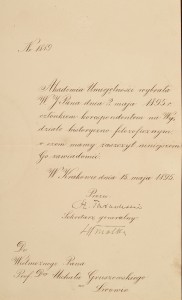 Akademia Umiejętności wybrała
W. Pana dnia 2 maja 1893 r.
członkiem korespondentem na Wy-
dziale historyczno filozoficznym,
o czem mamy zaszczyt niniejszem
Go zawiadomić.
W Krakowie dnia 18. maja 1893
Prezes
Sekretarz generalny
Do
Wielmożnego Pana
Prof. Dra Michała
Lwowie